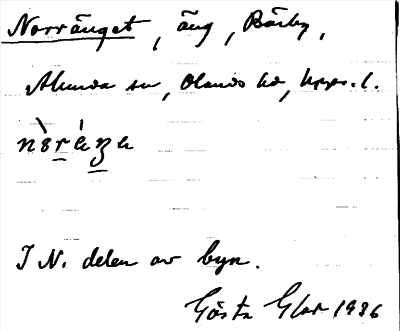 Norränget, äng, Bärby,
Alunda sn, Olands hd, Upps. l.
I N. delen av byn.
Gösta 1936